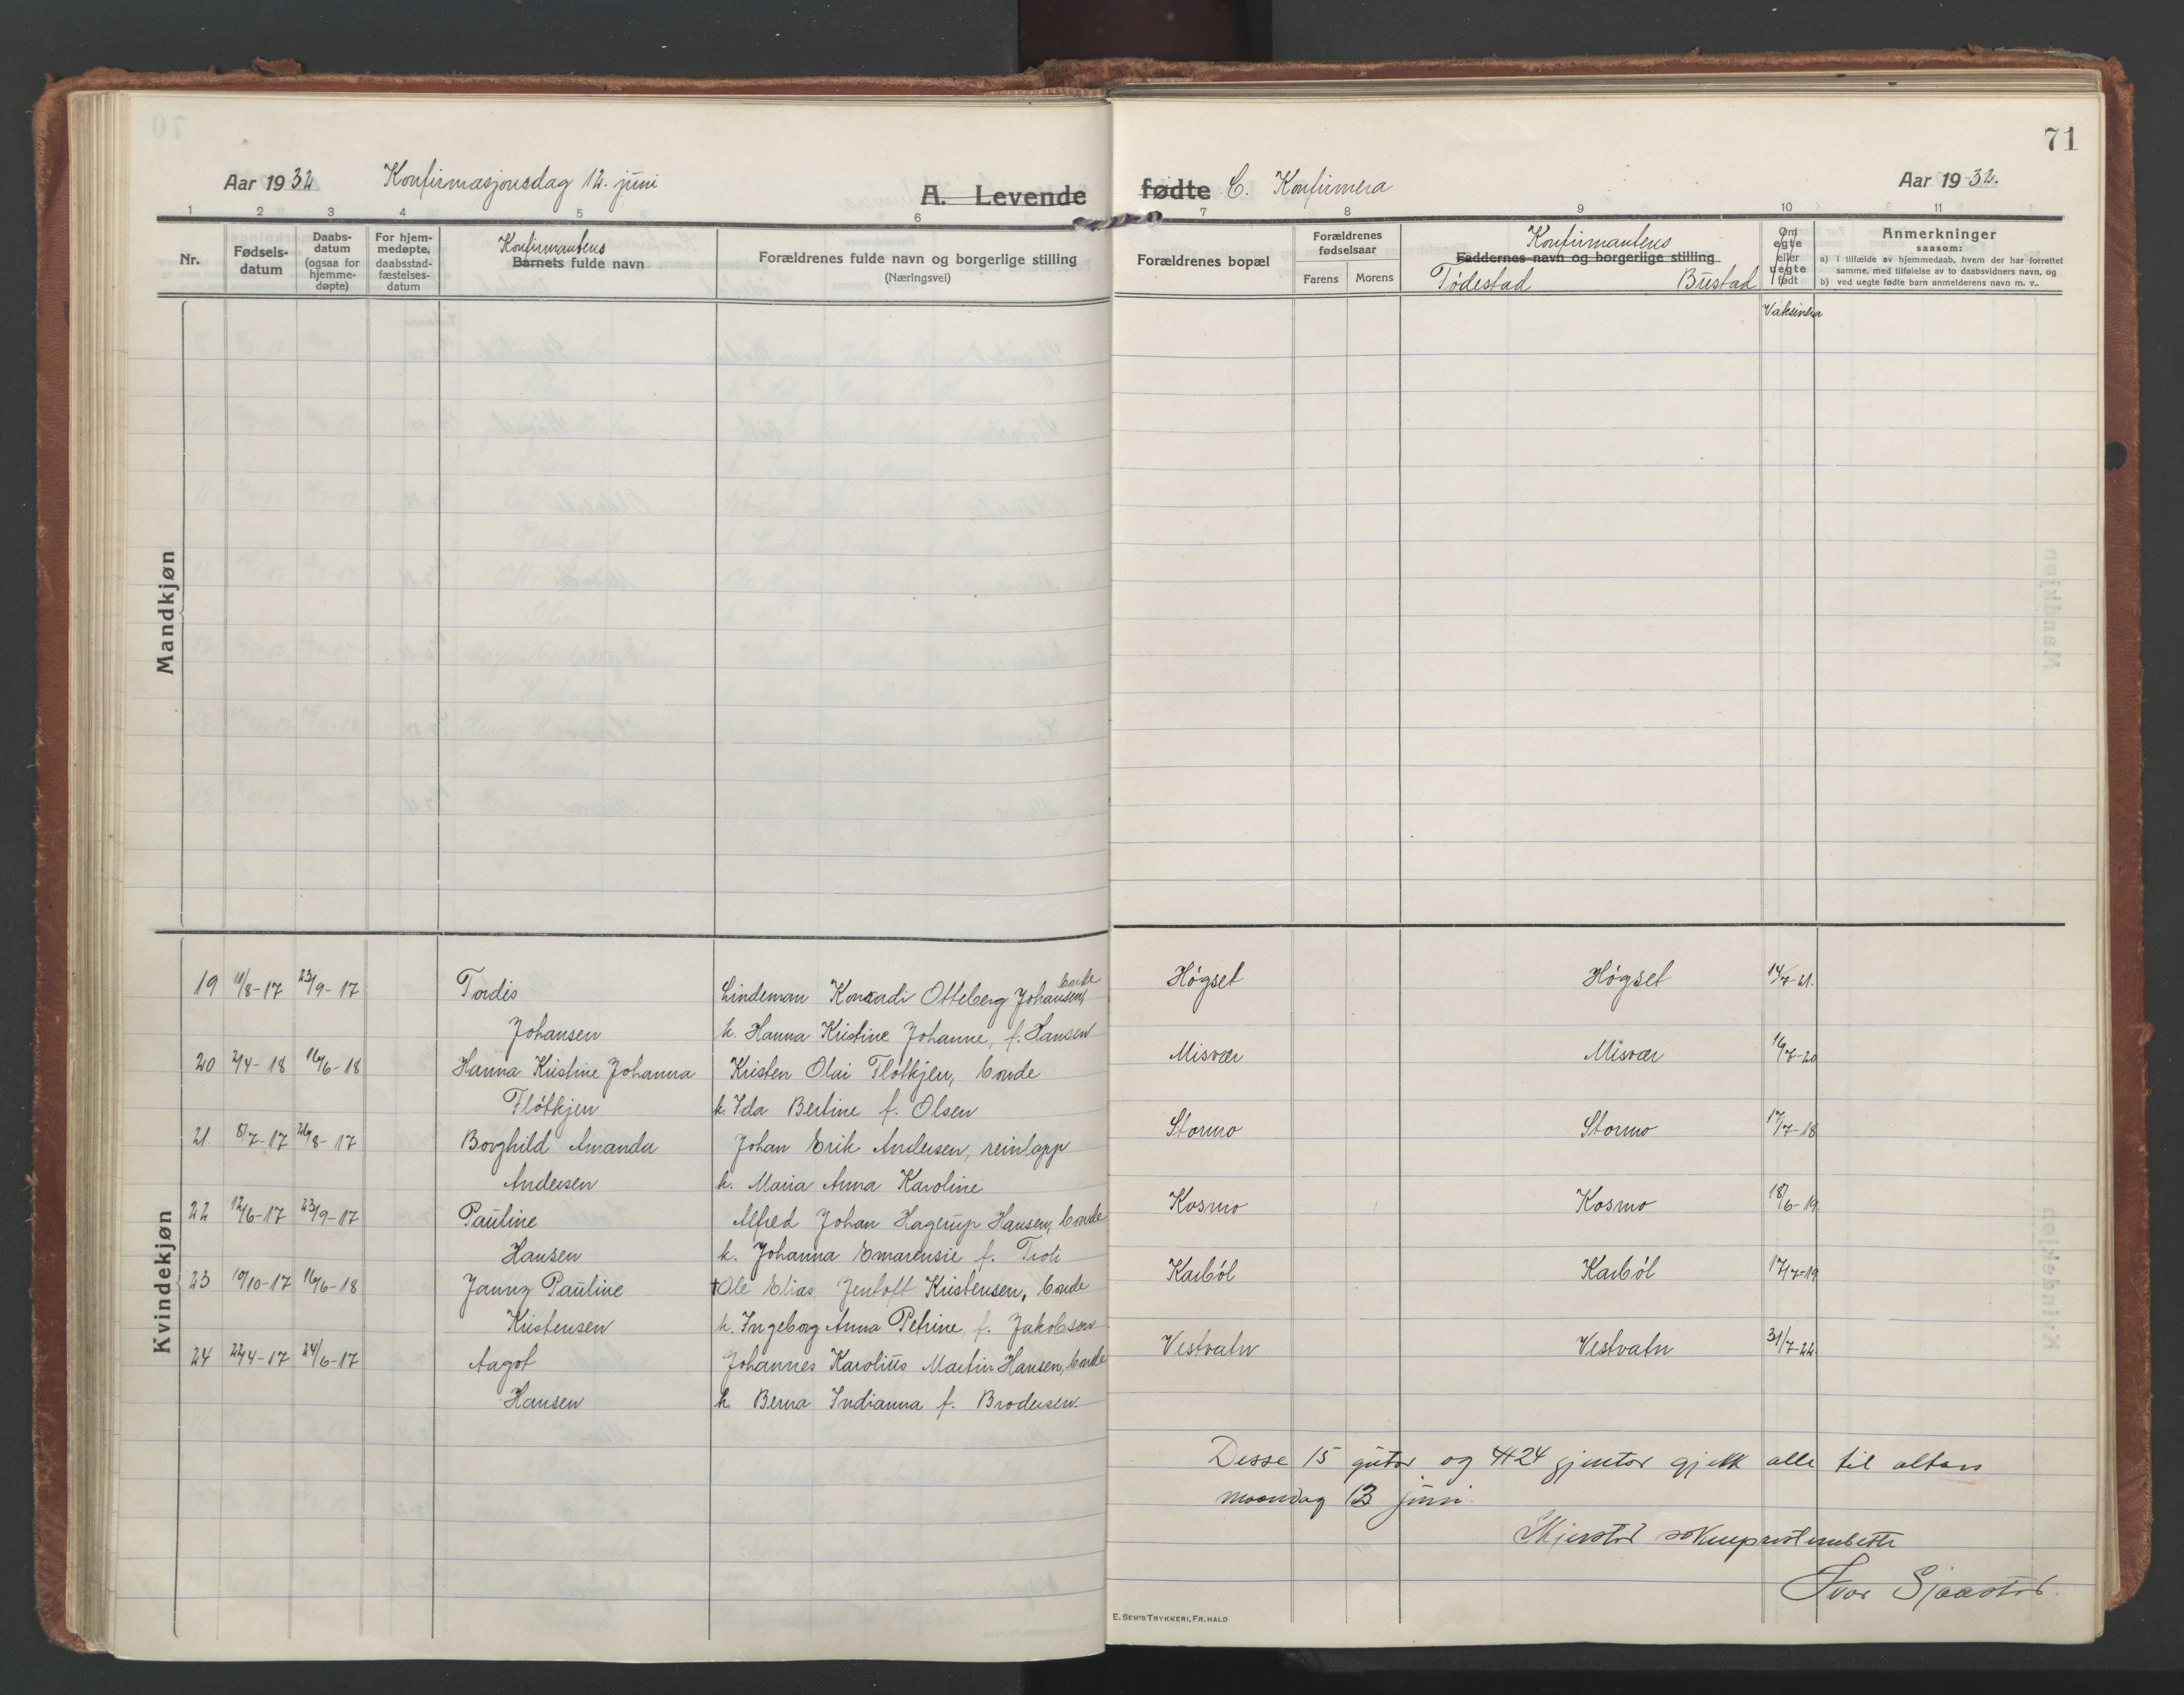 71
Aar 1932 Konfirmasjonsdag 12. juni A. Levende fødte C. Konfirmera Aar 1932.
1 2 3 4 5 6 7 8 9 10 11
Nr.
Fødsels-
datum
Daabs-
datum
(ogsaa for
hjemme-
døpte)
For hjem-
medøpte,
daabsstad-
fæstelses-
datum
Konfirmantens
Barnets fulde navn
Forældrenes fulde navn og borgerlige stilling
(Næringsvei)
Forældrenes bopæl
Forældrenes
fødselsaar
Farens Morens
Konfirmantens
Faddernes navn og borgerlige stilling
Fødestad Bustad
Om
egte
eller
uegte
født
Vaksinera
Anmerkninger
saasom:
a) i tilfælde av hjemmedaab, hvem der har forrettet
samme, med tilføielse av to daabsvidners navn, og
b) ved uegte fødte barn anmelderens navn m. v..
Mandkjøn
Kvindekjøn
19 11/8-17 23/9-17 Tordis Lindeman Konradi Otteberg Johansen, bonde Högset Högset 14/7-21.
Johansen h. Hanna Kristine Johanne, f. Hansen
20 2/4-18 16/6-18 Hanna Kristine Johanna Kristen Olai Flötkjen, bonde Misvær Misvær 16/7-20
Flötkjen h. Ida Bertine f. Olsen
21. 8/7-17 26/8-17 Borghild Amanda Johan Erik Andersen, reinlapp Stormo Stormo 17/7-18
Andersen h. Maria Anna Karoline
22 12/6-17 23/9-17 Pauline Alfred Johan Hagerup Hansen, bonde Kosmo Kosmo 18/6-19
Hansen h. Johanna Emarensie f. Troli
23 10/10-17 16/6-18 Janny Pauline †Ole Elias Jentoft Kristensen, bonde Karböl Karböl 17/7-19
Kristensen h. Ingeborg Anna Petrine, f. Jakobsen
24 22/4-17 24/6-17 Aagot Johannes Karolius Martin Hansen, bonde Vestvatn Vestvatn 31/7-22
Hansen h. Berna Indianna f. Brodersen.
Desse 15 gutar og 24 gjentor gjekk alle til altars
maandag 13 juni.
Skjerstad sokneprestembætte
Ivar Sjaastad.
E. SEM'S TRYKKERI, FR.HALD